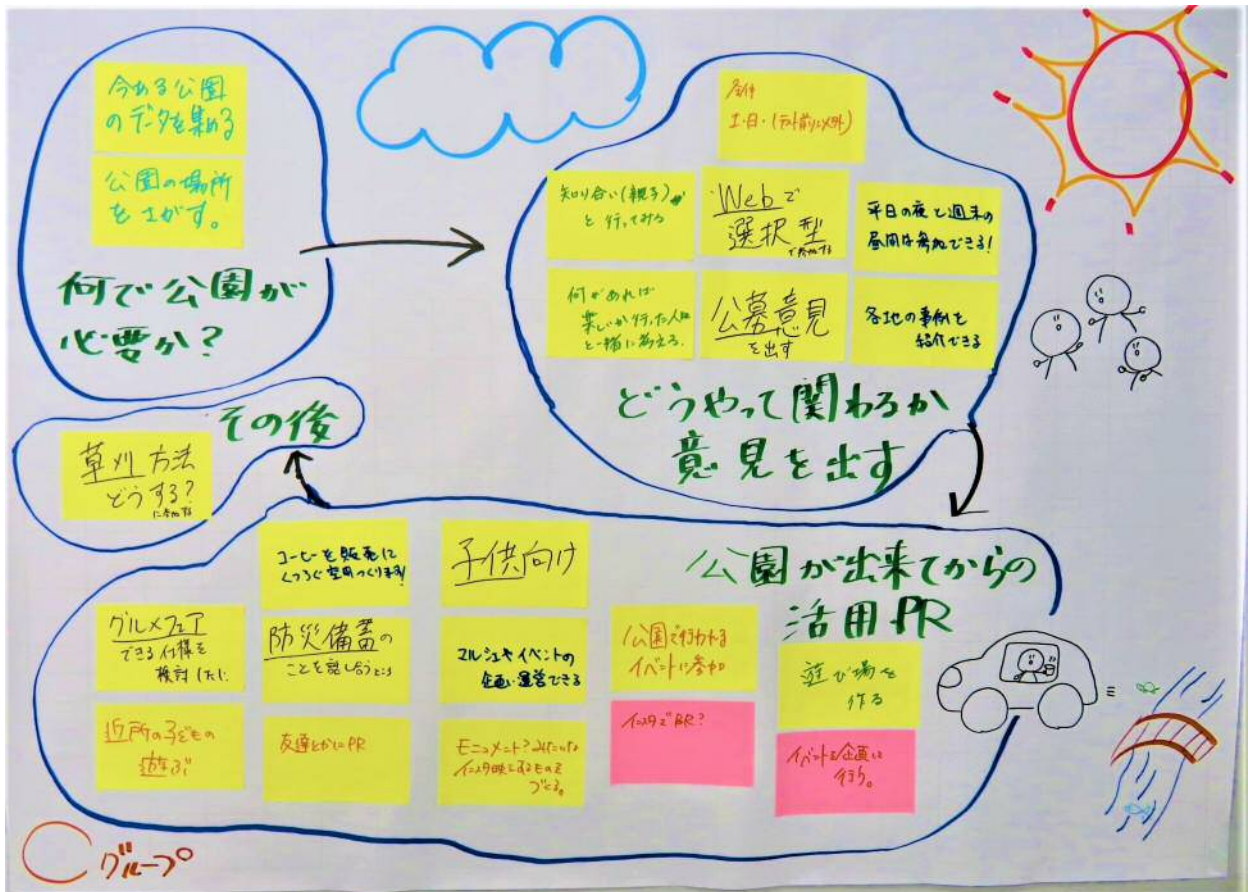 今ある公園
のデータを集める
公園の場所
をさがす。
何で公園が
必要か?
条件
土・日・(テスト前以外)
知り合い(親子)
と行ってみる
Webで
選択型
で参加する
平日の夜と週末の
昼間は参加できる!
何があれば
楽しいか行った人
と一緒に考える.
公募意見
を出す
各地の事例を
紹介できる
どうやって関わるか
意見を出す
その後
草刈方法
どうする?
に参加する
公園が出来てからの
活用PR
コーヒーを販売に
くつろぐ空間つくります!
子供向け
グルメフェア
できる仕様を
検討したい
防災備蓄の
ことを話し合うところ
マルシェやイベントの
企画・運営できる
公園で行われる
イベントに参加
遊び場を
作る
近所の子どもの
遊ぶ
友達とかにPR
モニュメント?みたいな
インスタ映えするものを
つくる。
インスタでPR?
イベントを企画に
行う。
Cグループ